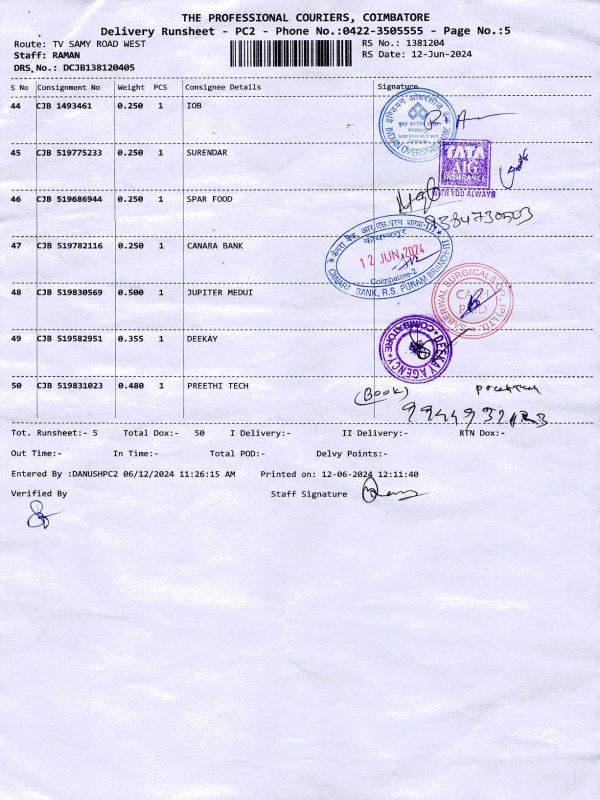 THE PROFESSIONAL COURIERS, COIMBATORE
Delivery Runsheet - PC2 - Phone No.:0422-3505555 - Page No.:5
Route: TV SAMY ROAD WEST RS No.: 1381204
Staff: RAMAN RS Date: 12-Jun-2024
DRS No.: DCJB138120405
S No Consignment No Weight PCS Consignee Details Signature
44 CJB 1493461 0.250 1 IOB
INDIAN OVERSEAS BANK
45 CJB 519775233 0.250 1 SURENDAR
TATA
AIG
INSURANCE
WITH YOU ALWAYS
46 CJB 519686944 0.250 1 SPAR FOOD
9384730503
47 CJB 519782116 0.250 1 CANARA BANK
12 JUN 2024
Coimbatore-2
CANARA BANK, R.S. PURAM BRANCH-II
48 CJB 519830569 0.500 1 JUPITER MEDUI
SABERWAL SURGICALS CO. (P) LTD.
49 CJB 519582951 0.355 1 DEEKAY
DEEKAY AGENCY
COIMBATORE
50 CJB 519831023 0.480 1 PREETHI TECH
(BOOK)
Tot. Runsheet:- 5 Total Dox:- 50 I Delivery:- II Delivery:- RTN Dox:-
Out Time:- In Time:- Total POD:- Delvy Points:-
Entered By :DANUSHPC2 06/12/2024 11:26:15 AM Printed on: 12-06-2024 12:11:40
Verified By Staff Signature